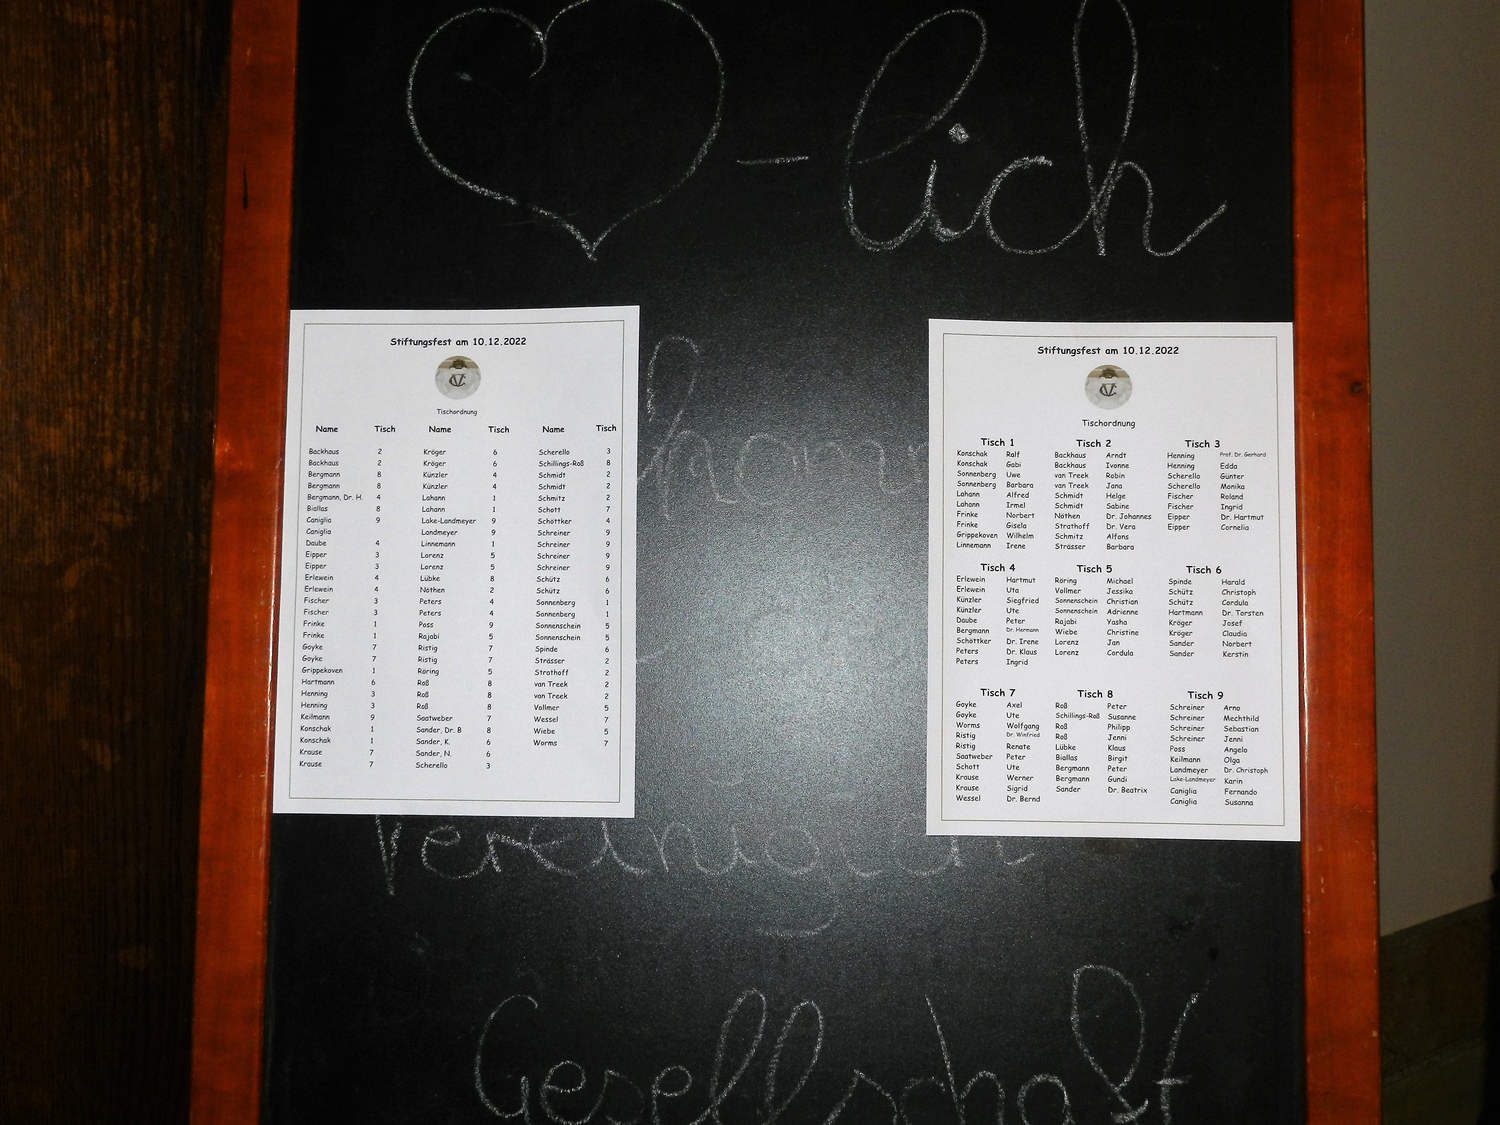 -lich
Stiftungsfest am 10.12.2022
Tischordnung
Name Tisch Name Tisch Name Tisch
Backhaus 2 Kröger 6 Scherello 3
Backhaus 2 Kröger 6 Schillings-Roß 8
Bergmann 8 Künzler 4 Schmidt 2
Bergmann 8 Künzler 4 Schmidt 2
Bergmann, Dr. H. 4 Lahann 1 Schmitz 2
Biallas 8 Lahann 1 Schott 7
Caniglia 9 Lake-Landmeyer 9 Schöttker 4
Caniglia Landmeyer 9 Schreiner 9
Daube 4 Linnemann 1 Schreiner 9
Eipper 3 Lorenz 5 Schreiner 9
Eipper 3 Lorenz 5 Schreiner 9
Erlewein 4 Lübke 8 Schütz 6
Erlewein 4 Nöthen 2 Schütz 6
Fischer 3 Peters 4 Sonnenberg 1
Fischer 3 Peters 4 Sonnenberg 1
Frinke 1 Poss 9 Sonnenschein 5
Frinke 1 Rajabi 5 Sonnenschein 5
Goyke 7 Ristig 7 Spinde 6
Goyke 7 Ristig 7 Strässer 2
Grippekoven 1 Röring 5 Strathoff 2
Hartmann 6 Roß 8 van Treek 2
Henning 3 Roß 8 van Treek 2
Henning 3 Roß 8 Vollmer 5
Keilmann 9 Saatweber 7 Wessel 7
Konschak 1 Sander, Dr. B 8 Wiebe 5
Konschak 1 Sander, K. 6 Worms 7
Krause 7 Sander, N. 6
Krause 7 Scherello 3
Stiftungsfest am 10.12.2022
Tischordnung
Tisch 1 Tisch 2 Tisch 3
Konschak Ralf Backhaus Arndt Henning Prof. Dr. Gerhard
Konschak Gabi Backhaus Ivonne Henning Edda
Sonnenberg Uwe van Treek Robin Scherello Günter
Sonnenberg Barbara van Treek Jana Scherello Monika
Lahann Alfred Schmidt Helge Fischer Roland
Lahann Irmel Schmidt Sabine Fischer Ingrid
Frinke Norbert Nöthen Dr. Johannes Eipper Dr. Hartmut
Frinke Gisela Strathoff Dr. Vera Eipper Cornelia
Grippekoven Wilhelm Schmitz Alfons
Linnemann Irene Strässer Barbara
Tisch 4 Tisch 5 Tisch 6
Erlewein Hartmut Röring Michael Spinde Harald
Erlewein Uta Vollmer Jessika Schütz Christoph
Künzler Siegfried Sonnenschein Christian Schütz Cordula
Künzler Ute Sonnenschein Adrienne Hartmann Dr. Torsten
Daube Peter Rajabi Yasha Kröger Josef
Bergmann Dr. Hermann Wiebe Christine Kröger Claudia
Schöttker Dr. Irene Lorenz Jan Sander Norbert
Peters Dr. Klaus Lorenz Cordula Sander Kerstin
Peters Ingrid
Tisch 7 Tisch 8 Tisch 9
Goyke Axel Roß Peter Schreiner Arno
Goyke Ute Schillings-Roß Susanne Schreiner Mechthild
Worms Wolfgang Roß Philipp Schreiner Sebastian
Ristig Dr. Winfried Roß Jenni Schreiner Jenni
Ristig Renate Lübke Klaus Poss Angelo
Saatweber Peter Biallas Birgit Keilmann Olga
Schott Ute Bergmann Peter Landmeyer Dr. Christoph
Krause Werner Bergmann Gundi Lake-Landmeyer Karin
Krause Sigrid Sander Dr. Beatrix Caniglia Fernando
Wessel Dr. Bernd Caniglia Susanna
Gesellschaft